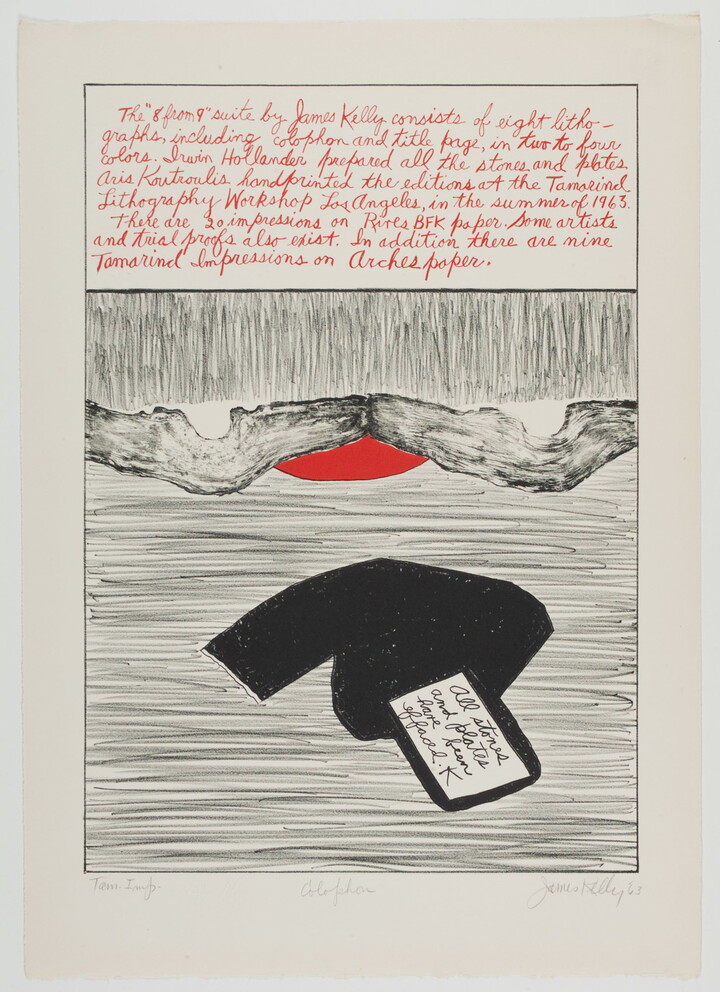 The "8 from 9" suite by James Kelly consists of eight litho-
graphs, including colophon and title page, in two to four
colors. Irwin Hollander prepared all the stones and plates.
Aris Koutroulis handprinted the editions at the Tamarind
Lithography Workshop Los Angeles, in the summer of 1963.
There are 20 impressions on Rives BFK paper. Some artists
and trial proofs also exist. In addition there are nine
Tamarind Impressions on Arches paper.
All stones
and plates
have been
effaced. K
Tam. Imp.
Colophon
James Kelly '63